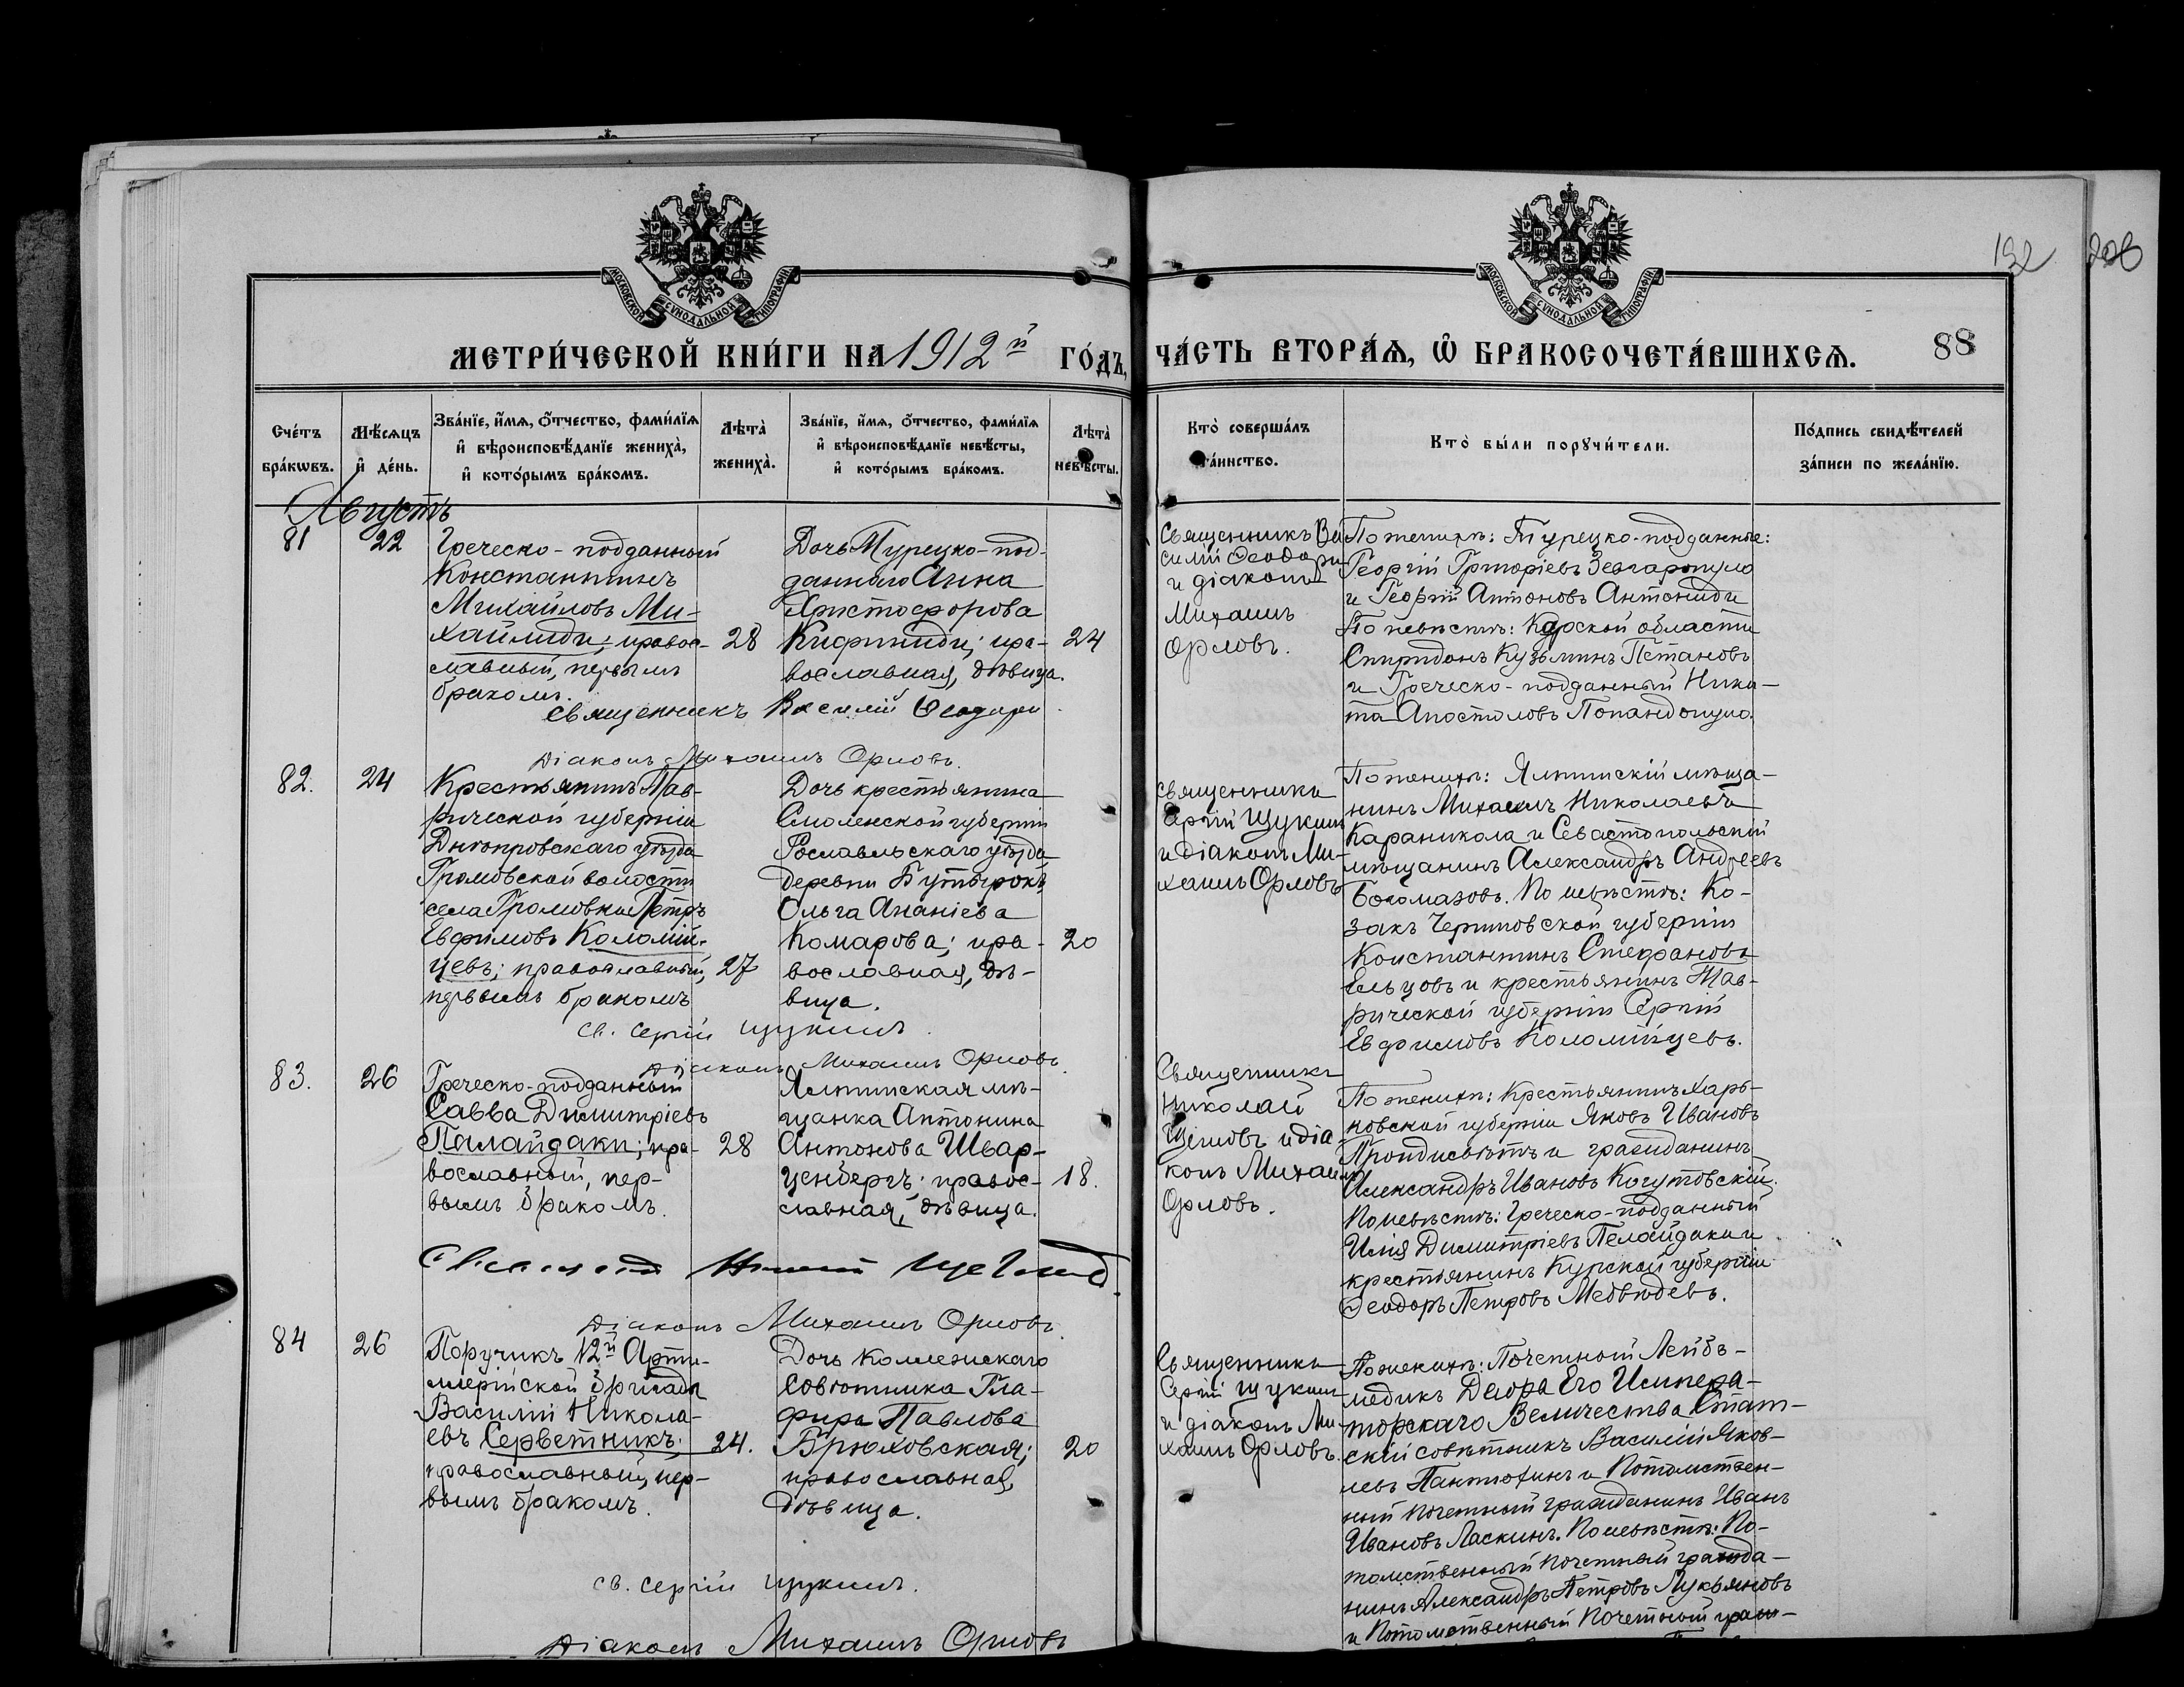 132 208
МОСКОВСКОЙ СѴНОДАЛЬНОЙ ТИПОГРАФІИ
МОСКОВСКОЙ СѴНОДАЛЬНОЙ ТИПОГРАФІИ
МЕТРИ́ЧЕСКОЙ КНИ́ГИ НА 1912й ГО́ДЪ, ЧА́СТЬ ВТОРА́Ѧ, Ѽ БРАКОСОЧЕТА́ВШИХСѦ.
88
Сче́тъ бра́кѡвъ.
Мѣ́сѧцъ и҆ де́нь.
Зва́нїе, и҆́мѧ, ѻ҆́тчество, фами́лїѧ
и҆ вѣроисповѣ́данїе жениха̀,
и҆ кото́рымъ бра́комъ.
Лѣта̀ жениха̀.
Зва́нїе, и҆́мѧ, ѻ҆́тчество, фами́лїѧ
и҆ вѣроисповѣ́данїе невѣ́сты,
и҆ кото́рымъ бра́комъ.
Лѣта̀ невѣ́сты.
Кто̀ соверша́лъ та́инство.
Кто̀ бы́ли порꙋчи́тели.
По́дпись свидѣ́телей
за́писи по жела́нїю.
Августъ
81
22
Греческо-подданный
Константинъ
Михайловъ Ми-
хаилиди; правос-
лавный, первымъ
бракомъ.
28
Дочь Турецко-под-
даннаго Анна
Христофорова
Кифиниди; пра-
вославная, дѣвица.
24
Священникъ Василій Ѳеодори
Діаконъ Михаилъ Орловъ.
Священникъ Ва
силій Ѳеодори
и діаконъ
Михаилъ
Орловъ.
По женихѣ: Турецко-подданные:
Георгій Григоріевъ Зевгаропуло
и Георгій Антоновъ Антониди
По невѣстѣ: Карской области
Спиридонъ Кузьминъ Петановъ
и Греческо-подданный Ники-
та Апостоловъ Попандопуло.
82.
24
Крестьянинъ Тав-
рической губерніи
Днѣпровскаго уѣзда
Громовской волости
села Громовки Петръ
Евфимовъ Коломій-
цевъ; православный,
первымъ бракомъ
27
Дочь крестьянина
Смоленской губерніи
Рославльскаго уѣзда
деревни Бутырокъ
Ольга Ананіева
Комарова; пра-
вославная, дѣ-
вица.
20
Св. Сергій Щукинъ.
Діаконъ Михаилъ Орловъ.
Священникъ
Сергій Щукинъ
и діаконъ Ми-
хаилъ Орловъ
По женихѣ: Ялтинскій мѣща-
нинъ Михаилъ Николаевъ
Караникола и Севастопольскій
мѣщанинъ Александръ Андреевъ
Богомазовъ. По невѣстѣ: Ко-
закъ Черниговской губерніи
Константинъ Стефановъ
Ельцовъ и крестьянинъ Тав-
рической губерніи Сергій
Евфимовъ Коломійцевъ.
83.
26
Греческо-подданный
Савва Димитріевъ
Палайдаки; пра-
вославный, пер-
вымъ бракомъ.
28
Ялтинская мѣ-
щанка Антонина
Антонова Швар-
ценбергъ; правос-
славная, дѣвица.
18.
Діаконъ Михаилъ Орловъ.
Священникъ
Николай
Щегловъ и діа-
конъ Михаилъ
Орловъ.
По женихѣ: Крестьянинъ Харь-
ковской губерніи Яковъ Ивановъ
и гражданинъ
Александръ Ивановъ Когутовскій.
По невѣстѣ: Греческо-подданный
Илія Димитріевъ Пелайдаки и
крестьянинъ Курской губерніи
Ѳеодоръ Петровъ Медвѣдевъ.
84
26
Поручикъ 12й Арти-
ллерійской бригады
Василій Никола-
евъ Серветникъ;
православный, пер-
вымъ бракомъ.
24.
Дочь Коллежскаго
Совѣтника Гла-
фира Павлова
Брюховская;
православная,
дѣвица.
20
Св. Сергій Щукинъ.
Діаконъ Михаилъ Орловъ
Священникъ
Сергій Щукинъ
и діаконъ Ми-
хаилъ Орловъ.
По женихѣ: Почетный Лейбъ-
медикъ Двора Его Импера-
торскаго Величества Стат-
скій совѣтникъ Василій Яков-
левъ Пантюхинъ и Потомствен-
ный почетный гражданинъ Иванъ
Ивановъ Ласкинъ. По невѣстѣ: По-
томственный почетный гражда-
нинъ Александръ Петровъ Лукьяновъ
и Потомственный Почетный граж-